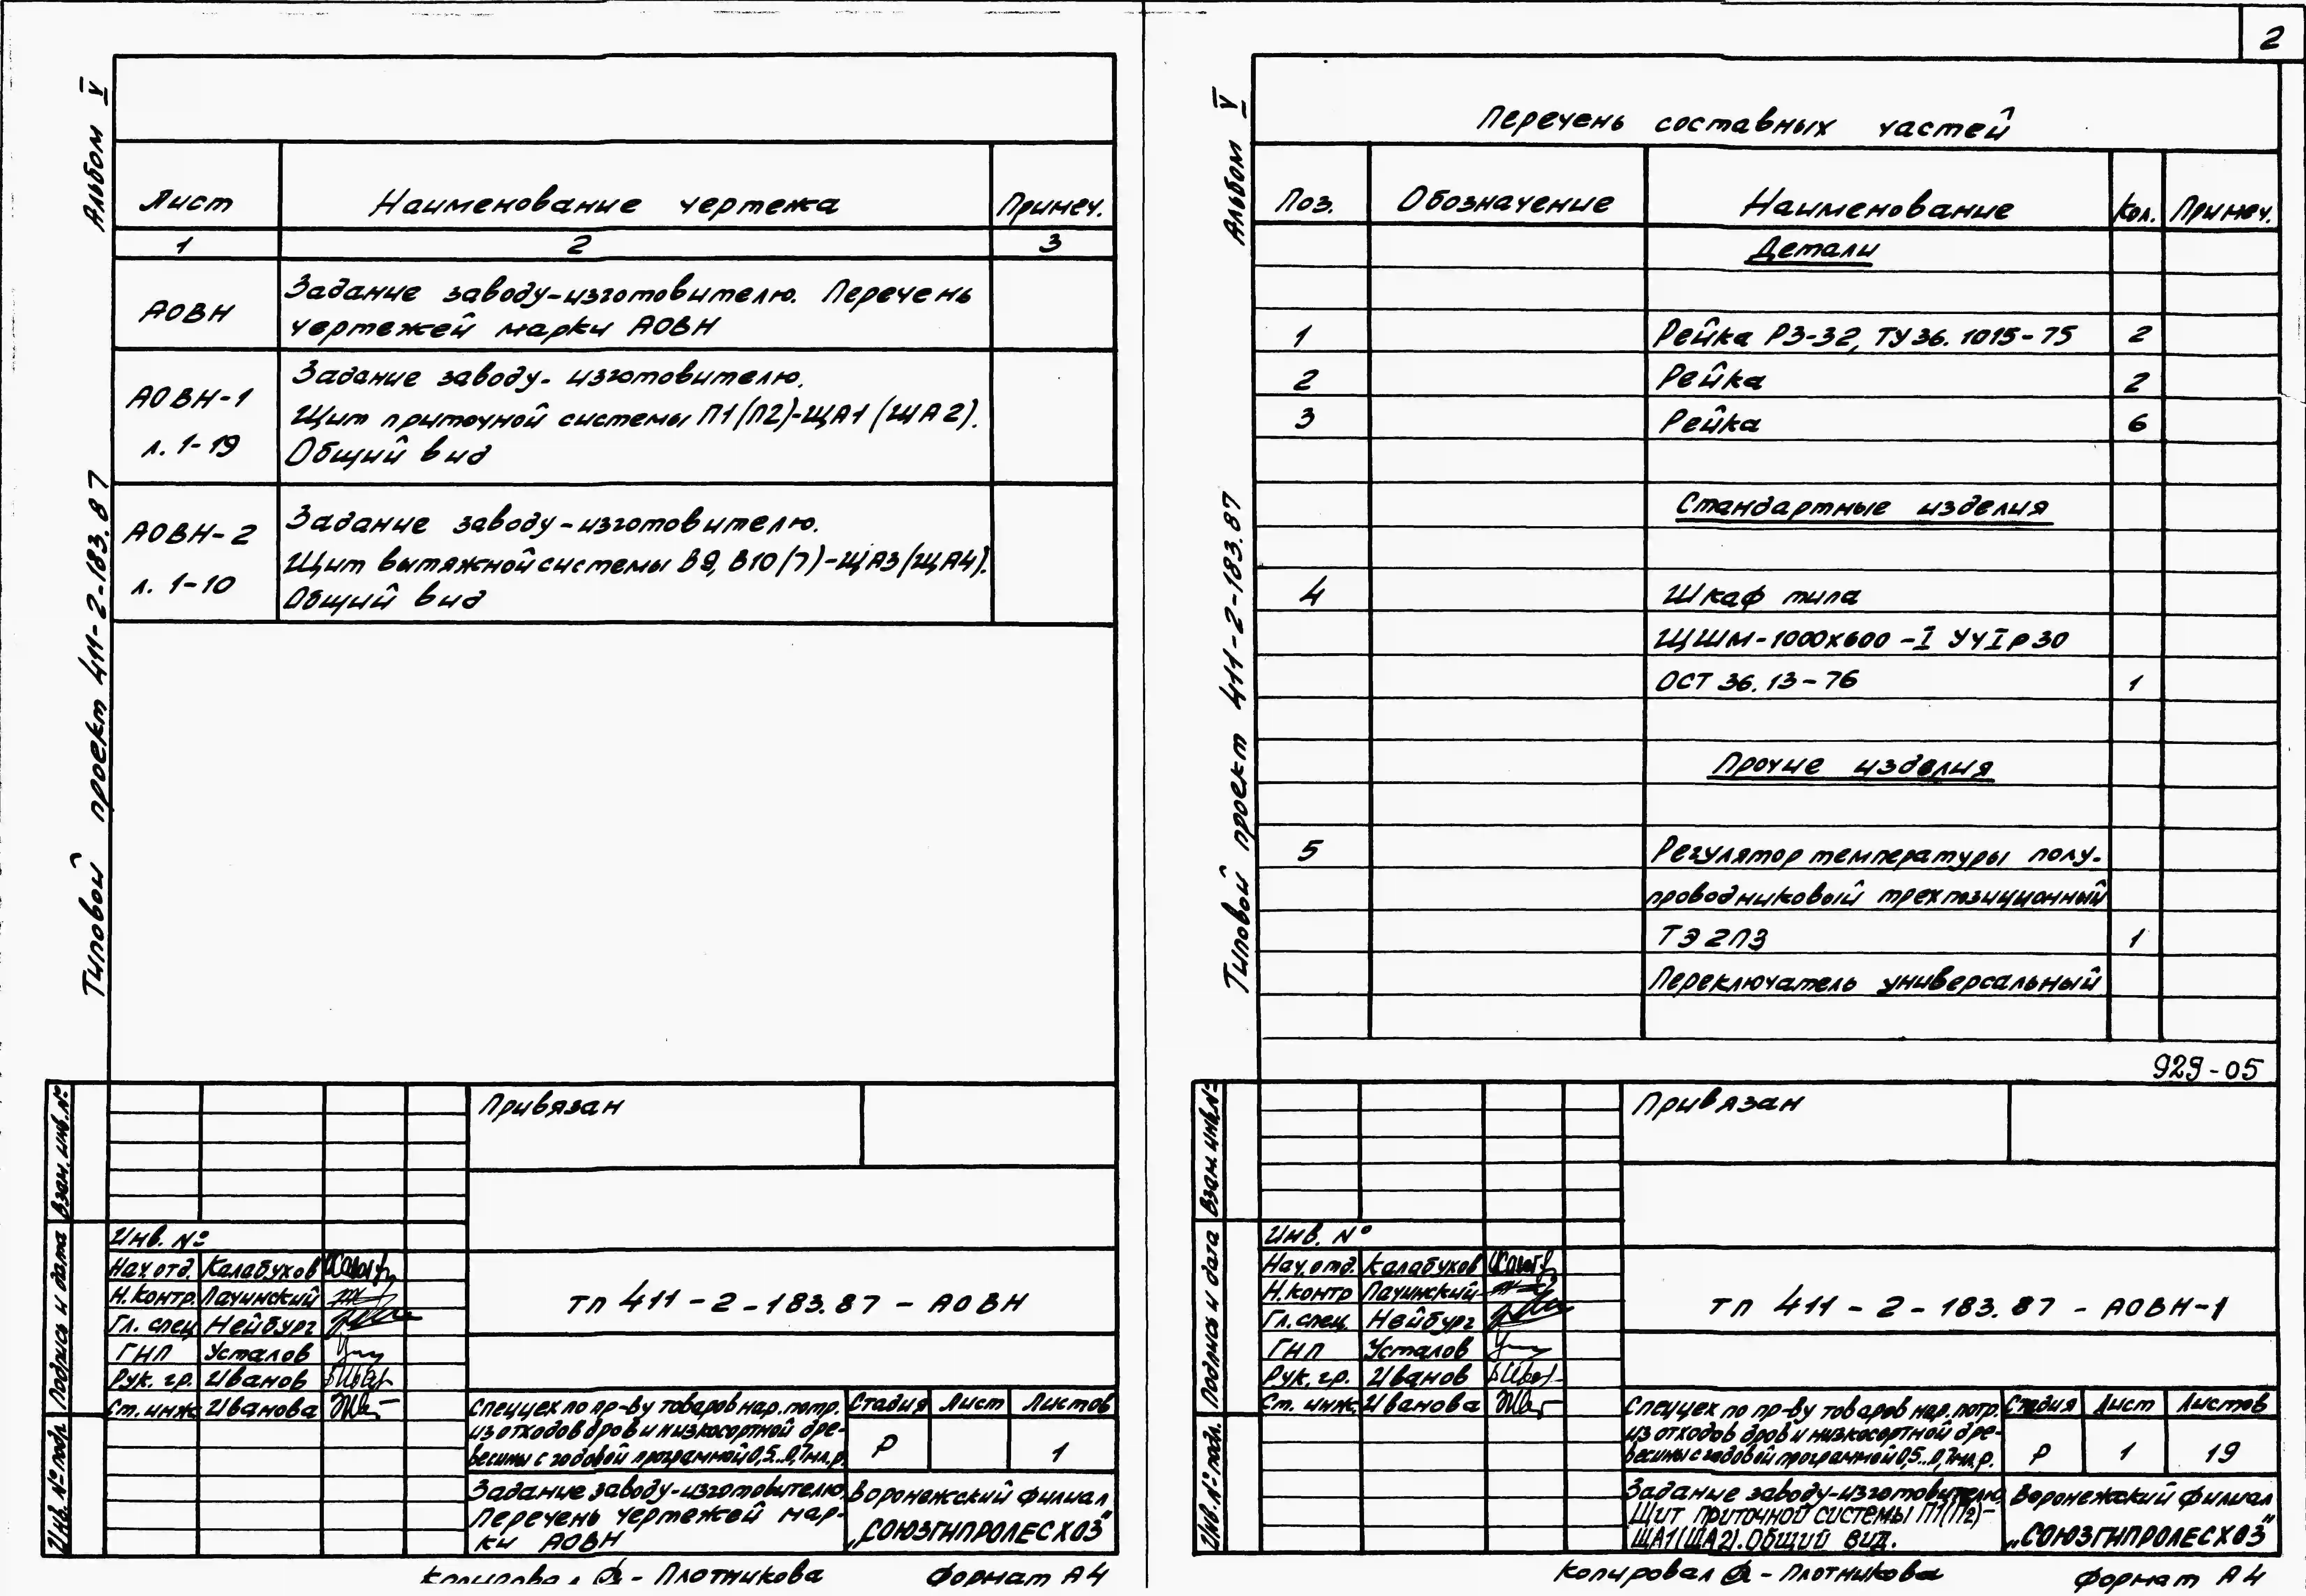 Альбом V
Типовой проект 411-2-183.87
Лист Наименование чертежа Примеч.
1 2 3
АОВН Задание заводу-изготовителю. Перечень
чертежей марки АОВН
АОВН-1 Задание заводу-изготовителю.
Щит приточной системы П1(П2)-ЩА1(ЩА2).
л. 1-19 Общий вид
АОВН-2 Задание заводу-изготовителю.
Щит вытяжной системы В9, В10(7)-ЩА3(ЩА4).
л. 1-10 Общий вид
Взам. инв. №
Подпись и дата
Инв. № подл.
Привязан
Инв. №
Нач. отд. Калабухов
Н. контр. Лачинский
Гл. спец Нейбург
ГНП Усталов
Рук. гр. Иванов
Ст. инж Иванова
ТП 411-2-183.87-АОВН
Спеццех по пр-ву товаров нар. потр.
из отходов дров и низкосортной дре-
весины с годовой программой 0,5..0,7мл.р.
Стадия Лист Листов
Р 1
Задание заводу-изготовителю
Перечень чертежей мар-
ки АОВН
Воронежский филиал
„СОЮЗГИПРОЛЕСХОЗ"
Копировал - Плотникова Формат А4
2
Альбом V
Типовой проект 411-2-183.87
Перечень составных частей
Поз. Обозначение Наименование Кол. Примеч.
Детали
1 Рейка Р3-32, ТУ36.1015-75 2
2 Рейка 2
3 Рейка 6
Стандартные изделия
4 Шкаф типа
ЩШМ-1000х600-I УЧ IР30
ОСТ 36.13-76 1
Прочие изделия
5 Регулятор температуры полу-
проводниковый трехпозиционный
ТЭ2П3 1
Переключатель универсальный
929-05
Взам. инв. №
Подпись и дата
Инв. № подл.
Привязан
Инв. №
Нач. отд. Калабухов
Н. контр Лачинский
Гл. спец. Нейбург
ГНП Усталов
Рук. гр. Иванов
Ст. инж. Иванова
ТП 411-2-183.87-АОВН-1
Спеццех по пр-ву товаров нар. потр.
из отходов дров и низкосортной дре-
весины с годовой программой 0,5..0,7мл.р.
Стадия Лист Листов
Р 1 19
Задание заводу-изготовителю
Щит приточной системы П1(П2)-
ЩА1(ЩА2). Общий вид.
Воронежский филиал
„СОЮЗГИПРОЛЕСХОЗ"
Копировал - Плотникова Формат А4